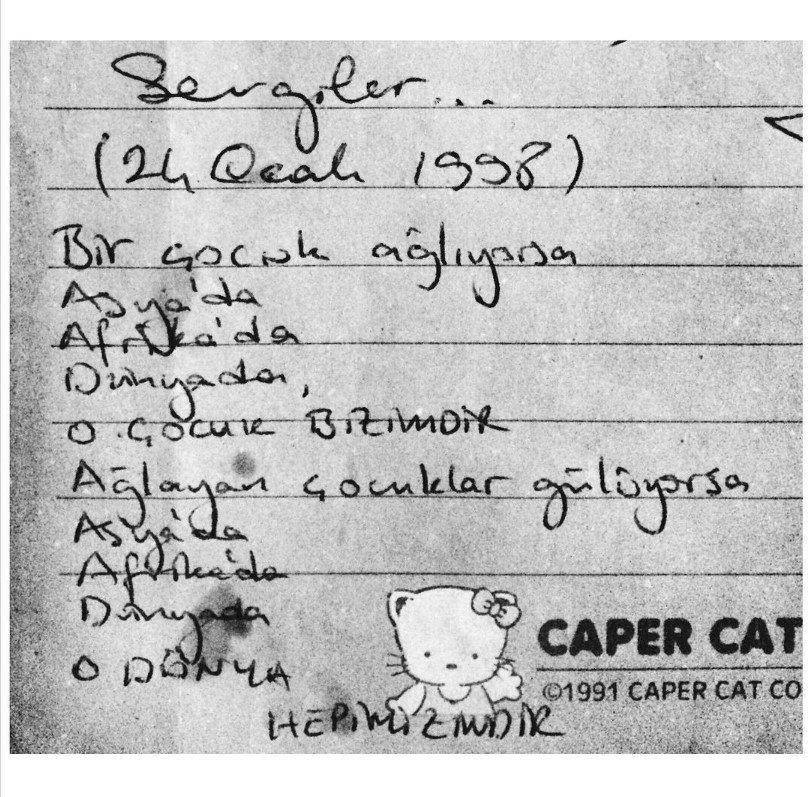 Sevgiler...
(24 Ocak 1998)
Bir çocuk ağlıyorsa
Asya'da
Afrika'da
Dünyada,
O çocuk BİZİMDİR
Ağlayan çocuklar gülüyorsa
Asya'da
Afrika'da
Dünyada
O DÜNYA
HEPİMİZİNDİR
CAPER CAT
©1991 CAPER CAT CO